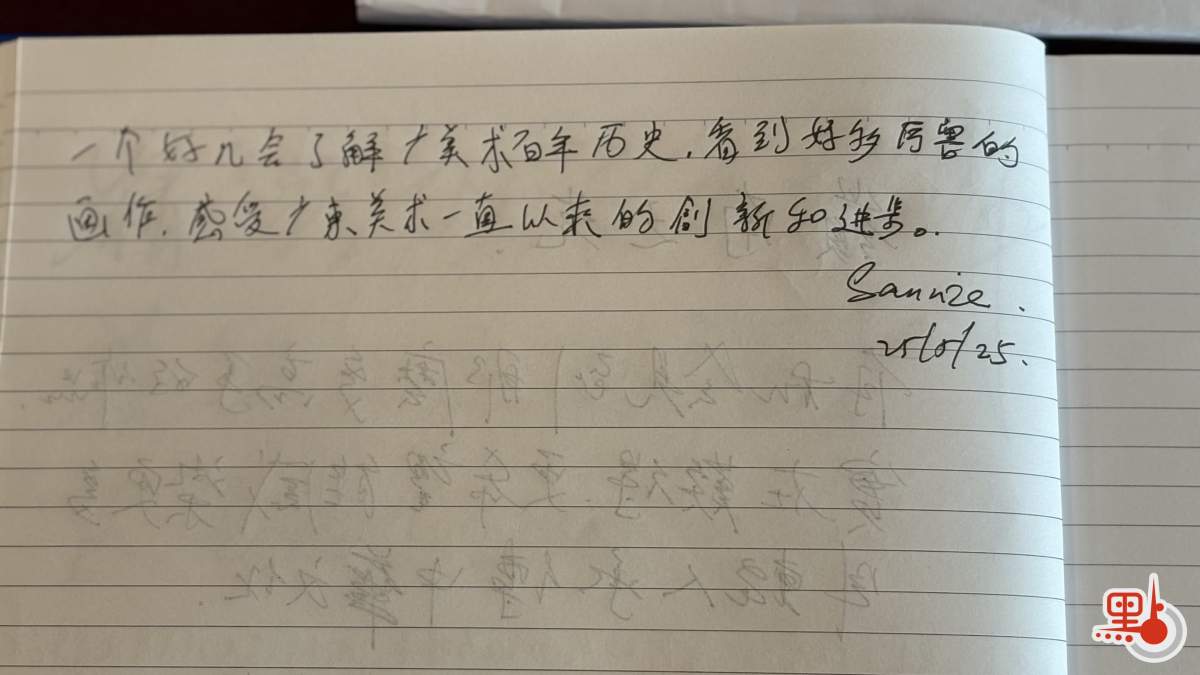 一个好几会了解广美术百年历史，看到好多厉害的
画作，感受广东美术一直以来的創新和进步。
Sannie.
25/5/25.
点